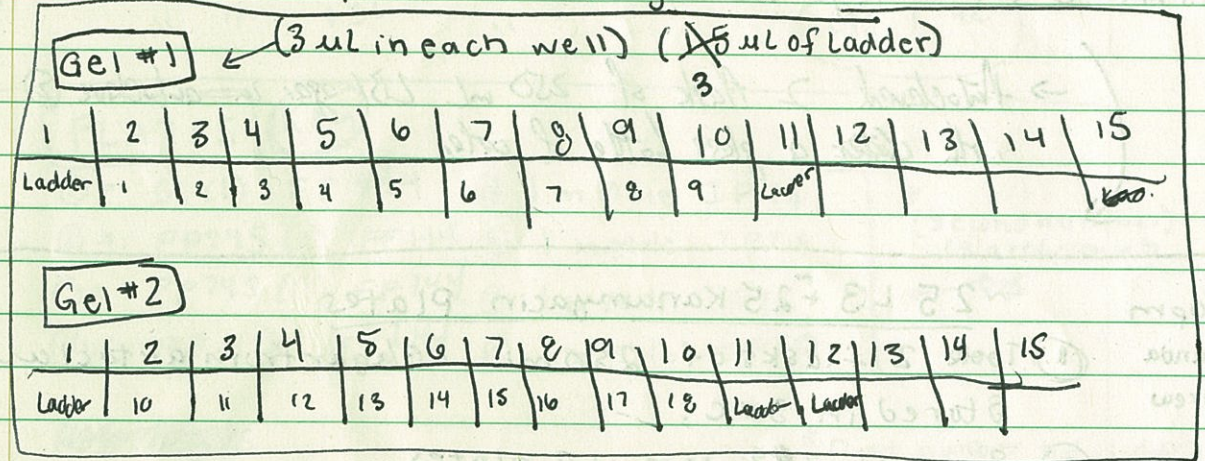 Gel #1 (3 uL in each well) (5 uL of Ladder)
3
1 2 3 4 5 6 7 8 9 10 11 12 13 14 15
Ladder 1 2 3 4 5 6 7 8 9 Ladder
Gel #2
1 2 3 4 5 6 7 8 9 10 11 12 13 14 15
Ladder 10 11 12 13 14 15 16 17 18 Ladder Ladder